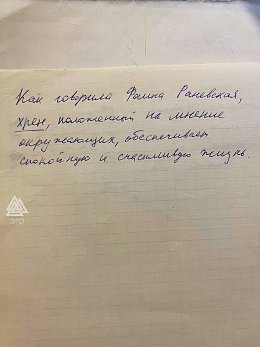 Как говорила Фаина Раневская,
хрен, положенный на мнение
окружающих, обеспечивает
спокойную и счастливую жизнь.
ЭГО